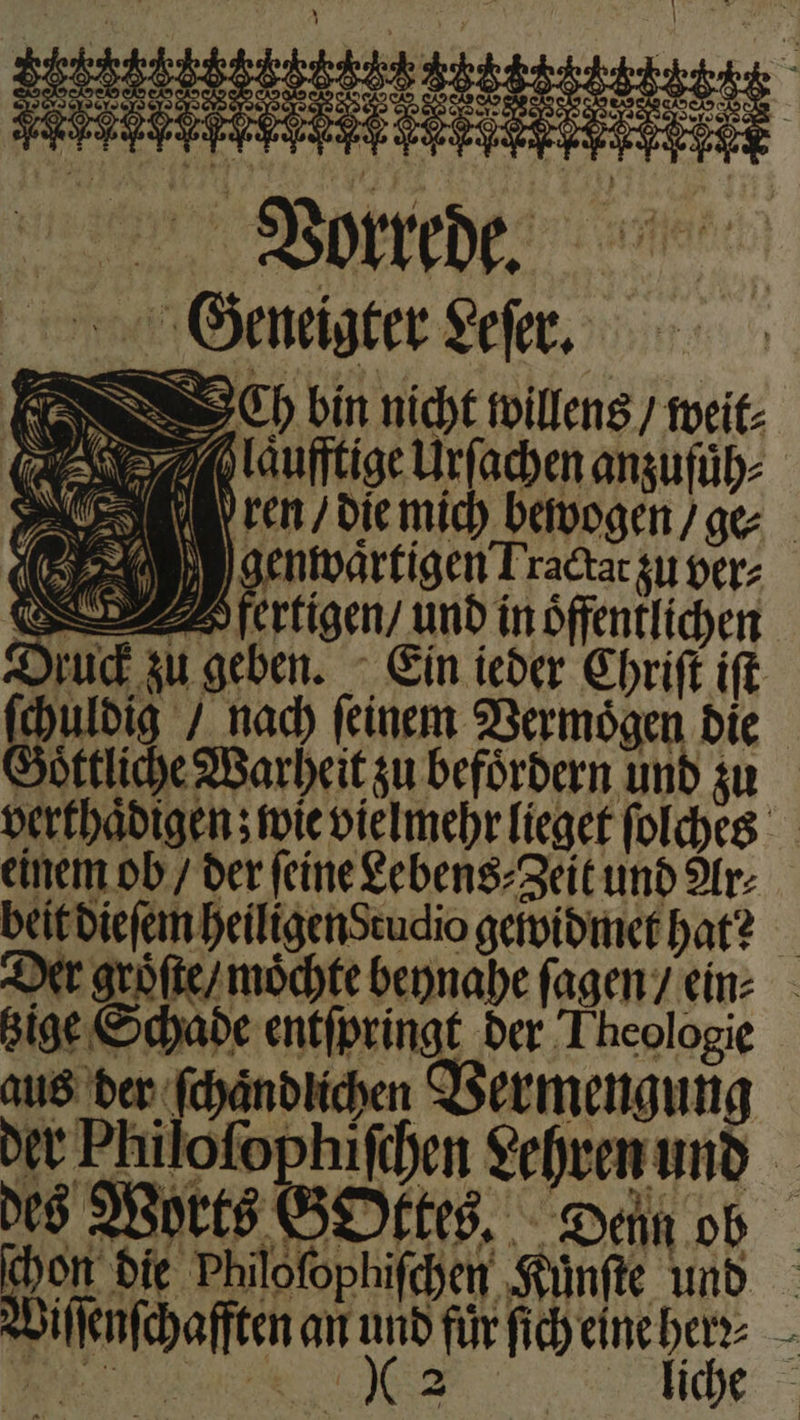 Vorrede.
Geneigter Leſer.
ICh bin nicht willens / weit⸗
laͤufftige Urſachen anzufuͤh⸗
ren / die mich bewogen / ge⸗
genwaͤrtigen Tractat zu ver⸗
fertigen / und in oͤffentlichen
Druck zu geben. Ein ieder Chriſt iſt
ſchuldig / nach ſeinem Vermoͤgen die
Goͤttliche Warheit zu befoͤrdern und zu
verthaͤdigen; wie vielmehr lieget ſolches
einem ob / der ſeine Lebens⸗Zeit und Ar⸗
beit dieſem heiligen Studio gewidmet hat?
Der groͤſte / moͤchte beynahe ſagen / ein⸗
tzige Schade entſpringt der Theologie
aus der ſchaͤndlichen Vermengung
der Philoſophiſchen Lehren und
des Worts GOttes. Denn ob
ſchon die Philoſophiſchen Kuͤnſte und
Wiſſenſchafften an und fuͤr ſich eine herꝛ⸗
)( 2 liche